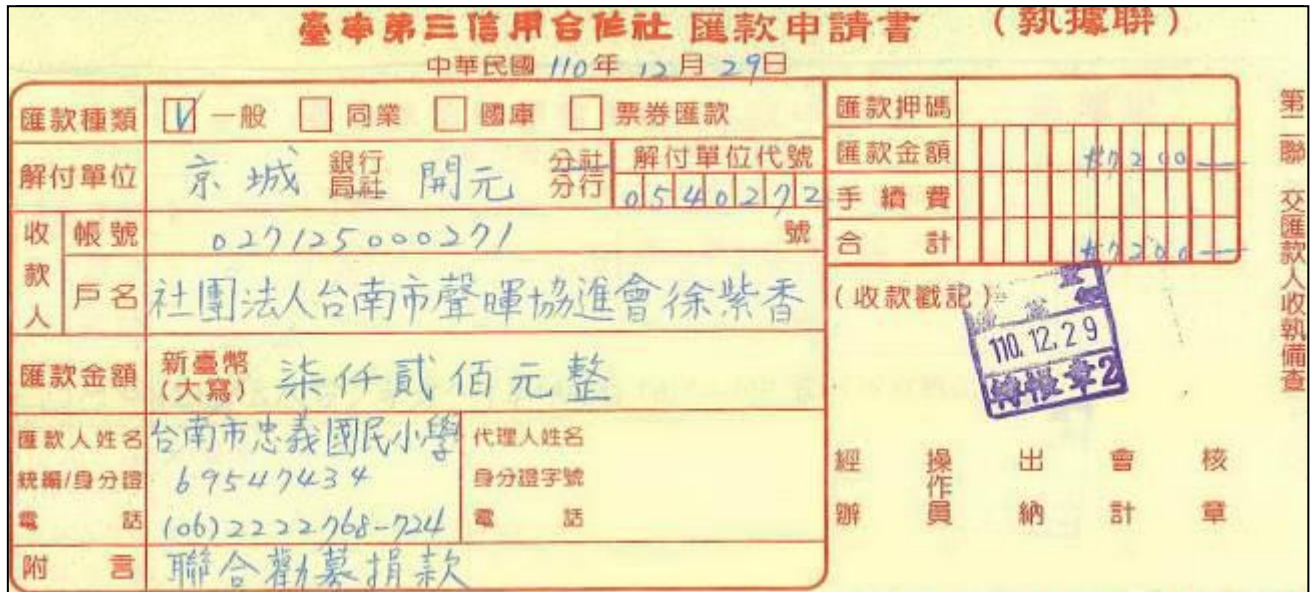 臺南第三信用合作社 匯款申請書 (執據聯)
中華民國 110年 12月 29日
匯款種類 V 一般 同業 國庫 票券匯款
解付單位 京城 銀行局社 開元 分社分行 解付單位代號 0540272
收款人 帳號 027125000271 號
戶名 社團法人台南市聲暉協進會徐紫香
匯款金額 新臺幣(大寫) 柒仟貳佰元整
匯款人姓名 台南市忠義國民小學 代理人姓名
統編/身分證 69547434 身分證字號
電話 (06)2222768-724 電話
附言 聯合勸募捐款
匯款押碼
匯款金額 #7200—
手續費
合計 #7200—
(收款戳記)
110.12.29
轉帳章2
經辦 操作員 出納 會計 核章
第二聯 交匯款人收執備查